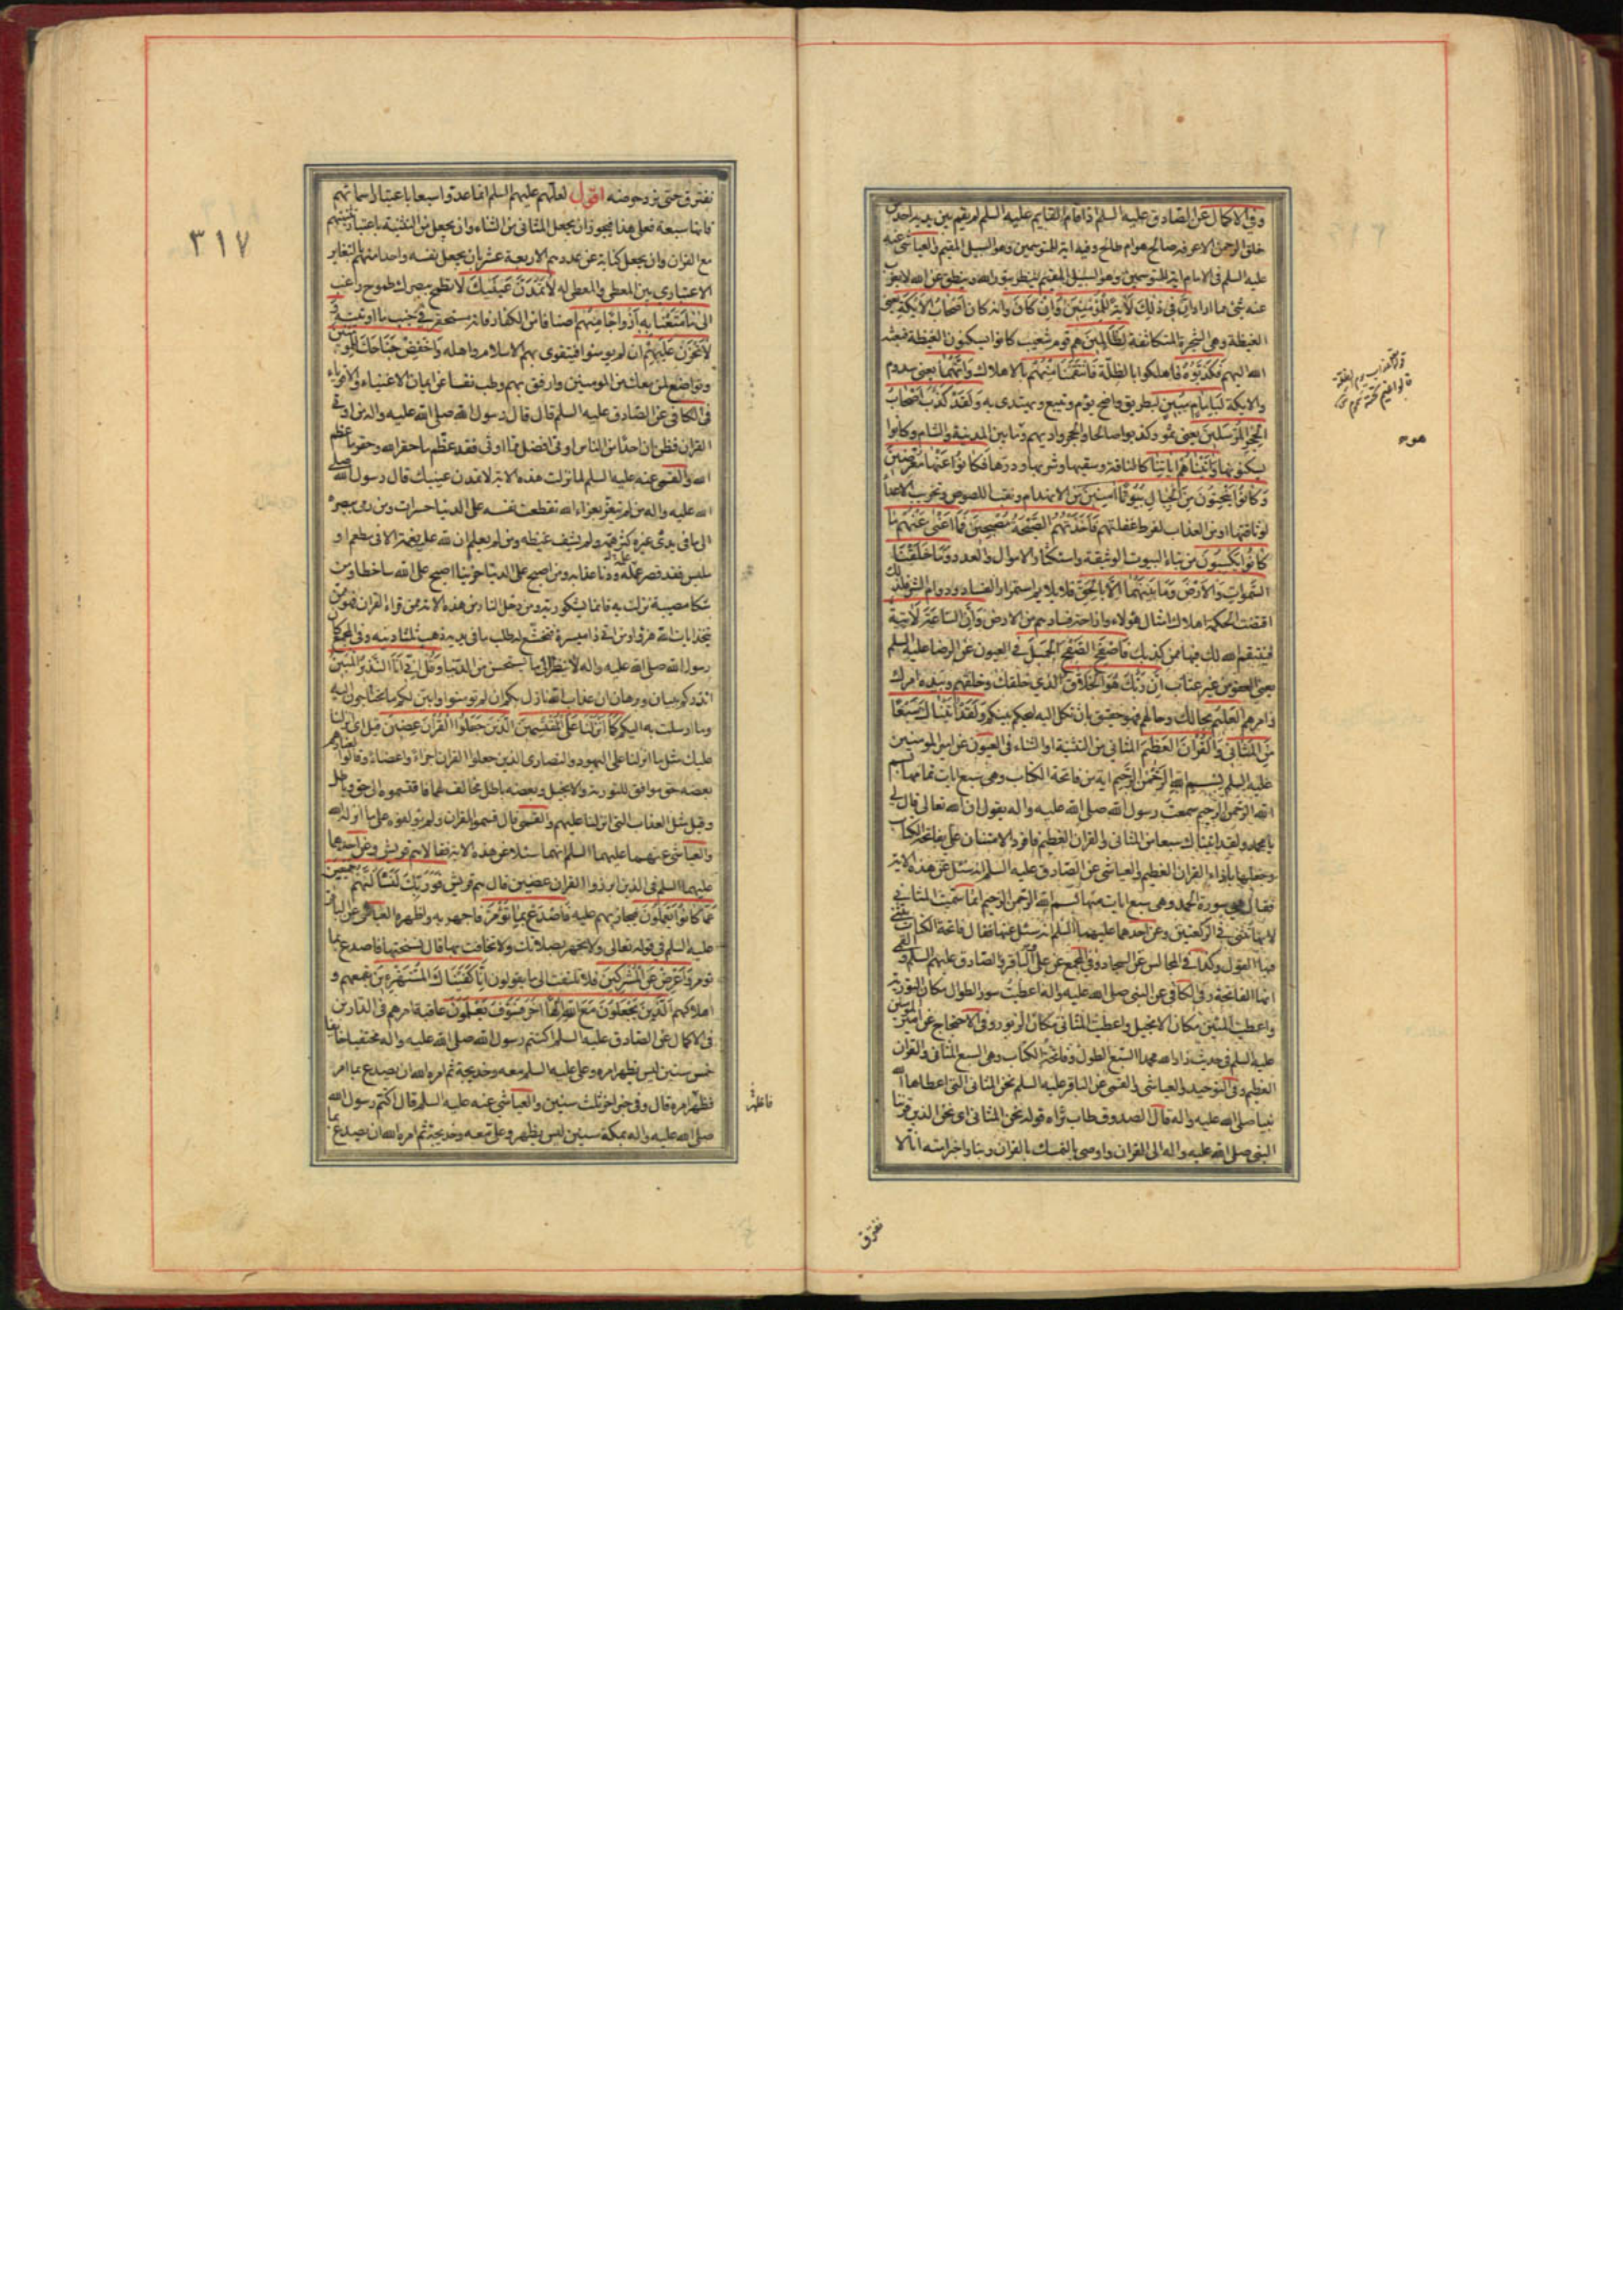 وفي الاكمال عن الصادق عليه السلم اذا قام القايم عليه السلم لم يقم بين يديه احد من
خلق الرحمن الا عرفه صالح هو ام طالح وفيه اية للمتوسمين وهو السبيل المقيم والعياشي عنه
عليه السلم في الامام اية للمتوسمين وهو السبيل المقيم ينظر بنور الله وينطق عن الله لا يعزب
عنه شئ مما اراد ان في ذلك لاية للمؤمنين وان كان وانه كان اصحاب الايكة يعني
الغيظة وهي الشجرة المتكاثفة لظالمين هم قوم شعيب كانوا يسكنون الغيظة فبعثه
الله اليهم فكذبوه فاهلكوا بالظلة فانتقمنا منهم بالاهلاك وانهما يعني سدوم
والايكة لبامام مبين لبطريق واضح يؤم ويتبع ويهتدى به ولقد كذب اصحاب
الحجر المرسلين يعني ثمود كذبوا صالحا والحجر واديهم وما بين المدينة والشام وكانوا
يسكنونها واتيناهم اياتنا كالناقة وسقيها وشربها ودرها فكانوا عنها معرضين
وكانوا ينحتون من الجبال بيوتا امنين من الانهدام ونقب اللصوص وتخريب الاعداء
لوثاقتها او من العذاب لفرط غفلتهم فاخذتهم الصيحة مصبحين فما اغنى عنهم ما
كانوا يكسبون من بناء البيوت الوثيقة واستكثار الاموال والعدد وما خلقنا
السموات والارض وما بينهما الا بالحق فلا يلايم استمرار الفساد ودوام الشر فلذلك
اقتضت الحكمة اهلاك امثال هؤلاء وازاحة فسادهم من الارض وان الساعة لاتية
فينتقم الله لك فيها ممن كذبك فاصفح الصفح الجميل في العيون عن الرضا عليه السلم
يعني العفو من غير عتاب ان ربك هو الخلاق الذي خلقك وخلقهم وبيده امرك
وامرهم العليم بحالك وحالهم فهو حقيق بان تكل اليه ليحكم بينكم ولقد اتيناك سبعا
من المثاني والقران العظيم المثاني من التثنية او الثناء في العيون عن امير المومنين
عليه السلم بسم الله الرحمن الرحيم اية من فاتحة الكتاب وهي سبع ايات تمامها بسم
الله الرحمن الرحيم سمعت رسول الله صلى الله عليه واله يقول ان الله تعالى قال لي
يا محمد ولقد اتيناك سبعا من المثاني والقران العظيم فافرد الامتنان علي بفاتحة الكتاب
وجعلها بازاء القران العظيم والعياشي عن الصادق عليه السلم انه سئل عن هذه الاية
فقال هي سورة الحمد وهي سبع ايات منها بسم الله الرحمن الرحيم انما سميت المثاني
لانها تثنى في الركعتين وعن احدهما عليهما السلم انه سئل عنها فقال فاتحة الكتاب يثنى
فيها القول وكذا في المجالس عن السجاد وفي المجمع عن علي والباقر والصادق عليهم السلم والقمي
انها الفاتحة وفي الكافي عن النبي صلى الله عليه واله اعطيت سور الطول مكان التورية
واعطيت المئين مكان الانجيل واعطيت المثاني مكان الزبور وفي الاحتجاج عن امير المومنين
عليه السلم في حديث زاد الله محمدا السبع الطول وفاتحة الكتاب وهي السبع المثاني والقران
العظيم وفي التوحيد والعياشي والقمي عن الباقر عليه السلم نحن المثاني التي اعطاها الله
نبينا صلى الله عليه واله قال الصدوق طاب ثراه قوله نحن المثاني اي نحن الذين قرننا
النبي صلى الله عليه واله الى القران واوصى بالتمسك بالقران وبنا واخبر امته انا لا
نفترق
٣١٧
نفترق حتى نرد حوضه اقول لعلهم عليهم السلم انما عدوا سبعا باعتبار اسمائهم
فانها سبعة فعلى هذا فيجوز ان يجعل المثاني من الثناء وان يجعل من التثنية باعتبار تثنيتهم
مع القران وان يجعل كناية عن عددهم الاربعة عشر بان يجعل نفسه واحدا منهم بالتغاير
الاعتباري بين المعطي والمعطى له لا تمدن عينيك لا تطمح ببصرك طموح راغب
الى ما متعنا به ازواجا منهم اصنافا من الكفار فانه مستحقر في جنب ما اوتيته و
لا تحزن عليهم ان لم يومنوا فيتقوى بهم الاسلام واهله واخفض جناحك للمؤمنين
وتواضع لمن معك من المومنين وارفق بهم وطب نفسا عن ايمان الاغنياء والاقوياء
في الكافي عن الصادق عليه السلم قال قال رسول الله صلى الله عليه واله من اوتي
القران فظن ان احدا من الناس اوتي افضل مما اوتي فقد عظم ما حقر الله وحقر ما عظم
الله والقمي عنه عليه السلم لما نزلت هذه الاية لا تمدن عينيك قال رسول الله صلى
الله عليه واله من لم يتعز بعزاء الله تقطعت نفسه على الدنيا حسرات ومن رمى ببصره
الى ما في يدي غيره كثر همه ولم يشف غيظه ومن لم يعلم ان لله عليه نعمة الا في مطعم او
ملبس فقد قصر عمله ودنا عذابه ومن اصبح على الدنيا حزينا اصبح على الله ساخطا ومن
شكا مصيبة نزلت به فانما يشكو ربه ومن دخل النار من هذه الامة ممن قراء القران فهو ممن
يتخذ ايات الله هزوا ومن اتى ذا ميسرة فتخشع له طلب ما في يديه ذهب ثلثا دينه وفي المجمع كان
رسول الله صلى الله عليه واله لا ينظر الى ما يستحسن من الدنيا وقل اني انا النذير المبين
انذركم ببيان وبرهان ان عذاب الله نازل بكم ان لم تومنوا وابين لكم ما تحتاجون اليه
وما ارسلت به اليكم كما انزلنا على المقتسمين الذين جعلوا القران عضين مثل ما انزلنا
عليك مثل ما انزلنا على اليهود والنصارى الذين جعلوا القران اجزاء واعضاء وقالوا
بعضه حق موافق للتورية والانجيل وبعضه باطل مخالف لهما فاقتسموه الى حق وباطل
وقيل مثل العذاب الذي انزلنا عليهم والقمي قال قسموا القران ولم يؤلفوه على ما انزله الله
والعياشي عنهما عليهما السلم انهما سئلا عن هذه الاية فقالا هم قريش وعن احدهما
عليهما السلم في الذين ابرزوا القران عضين قال هم قريش فوربك لنسألنهم اجمعين
عما كانوا يعملون فيجازيهم عليه فاصدع بما تؤمر فاجهر به واظهره العياشي عن الباقر
عليه السلم في قوله تعالى ولا تجهر بصلاتك ولا تخافت بها قال نسختها فاصدع بما
تؤمر واعرض عن المشركين فلا تلتفت الى ما يقولون انا كفيناك المستهزءين بقمعهم و
اهلاكهم الذين يجعلون مع الله الها اخر فسوف يعلمون عاقبة امرهم في الدارين
في الاكمال عن الصادق عليه السلم اكتتم رسول الله صلى الله عليه واله مختفيا خائفا
خمس سنين ليس يظهر امره وعلي عليه السلم معه وخديجة ثم امره الله ان يصدع بما امر
فظهر امره قال وفي خبر اخر ثلث سنين والعياشي عنه عليه السلم قال اكتتم رسول الله
صلى الله عليه واله بمكة سنين ليس يظهر وعلي معه وخديجة ثم امره الله ان يصدع بما
فاظهر